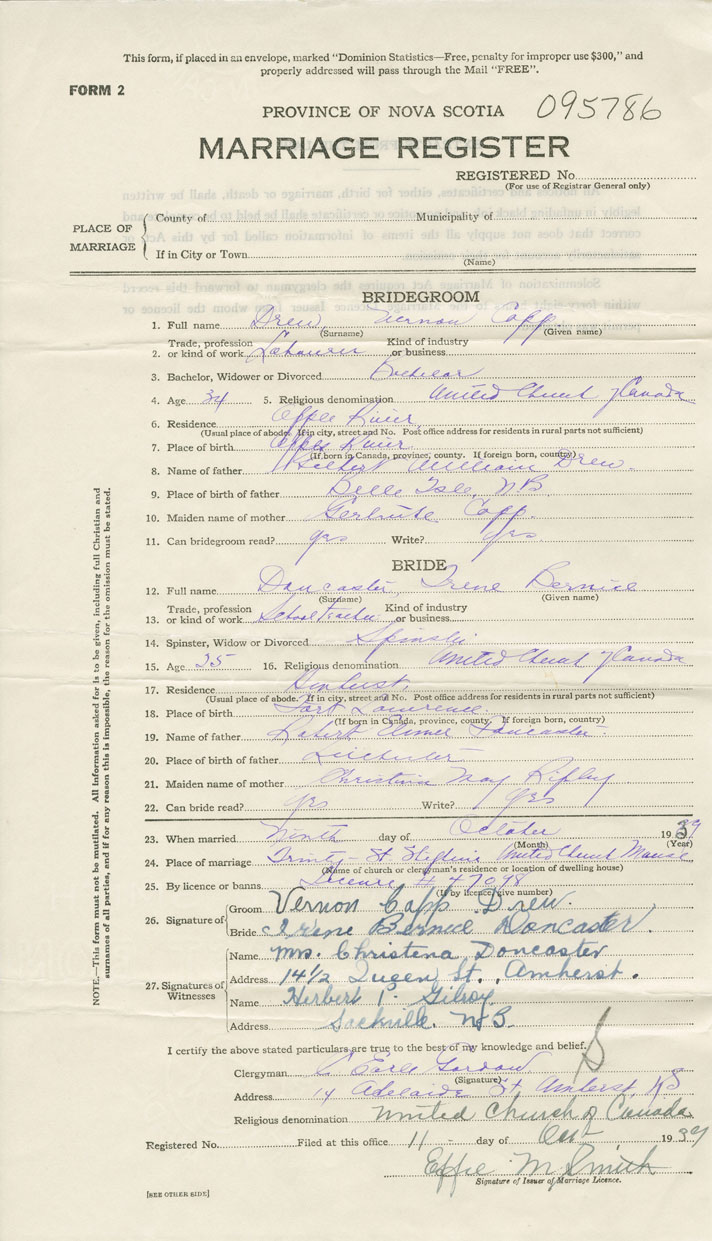 This form, if placed in an envelope, marked "Dominion Statistics—Free, penalty for improper use $300," and
properly addressed will pass through the Mail "FREE".
FORM 2
PROVINCE OF NOVA SCOTIA 095786
MARRIAGE REGISTER
REGISTERED No.
(For use of Registrar General only)
PLACE OF MARRIAGE
County of Municipality of
If in City or Town
(Name)
BRIDEGROOM
1. Full name Drew Vernon Capp
(Surname) (Given name)
2. Trade, profession or kind of work Labourer Kind of industry or business
3. Bachelor, Widower or Divorced Bachelor
4. Age 34 5. Religious denomination United Church of Canada
6. Residence River
(Usual place of abode. If in city, street and No. Post office address for residents in rural parts not sufficient)
7. Place of birth River
(If born in Canada, province, county. If foreign born, country)
8. Name of father William Drew
9. Place of birth of father Belle Isle, N B
10. Maiden name of mother Gertrude Capp
11. Can bridegroom read? yes Write? yes
BRIDE
12. Full name Doncaster, Irene Bernice
(Surname) (Given name)
13. Trade, profession or kind of work School Teacher Kind of industry or business
14. Spinster, Widow or Divorced Spinster
15. Age 35 16. Religious denomination United Church of Canada
17. Residence Amherst
(Usual place of abode. If in city, street and No. Post office address for residents in rural parts not sufficient)
18. Place of birth Fort Lawrence
(If born in Canada, province, county. If foreign born, country)
19. Name of father Robert Doncaster
20. Place of birth of father Leicester
21. Maiden name of mother Christina May Ripley
22. Can bride read? yes Write? yes
23. When married Ninth day of October 1939
(Month) (Year)
24. Place of marriage Trinity-St Stephens United Church Manse
(Name of church or clergyman's residence or location of dwelling house)
25. By licence or banns Licence # 47098
(If by licence, give number)
26. Signature of
Groom Vernon Capp Drew.
Bride Irene Bernice Doncaster.
27. Signatures of Witnesses
Name Mrs. Christena Doncaster
Address 14½ Queen St., Amherst.
Name Herbert P. Gilroy
Address Sackville. N.B.
I certify the above stated particulars are true to the best of my knowledge and belief.
Clergyman Earle Gordon
(Signature)
Address 14 Adelaide St Amherst NS
Religious denomination United Church of Canada
Registered No. Filed at this office 11 day of Oct 1939
Effie M Smith
Signature of Issuer of Marriage Licence.
[SEE OTHER SIDE]
NOTE.—This form must not be mutilated. All Information asked for is to be given, including full Christian and
surnames of all parties, and if for any reason this is impossible, the reason for the omission must be stated.